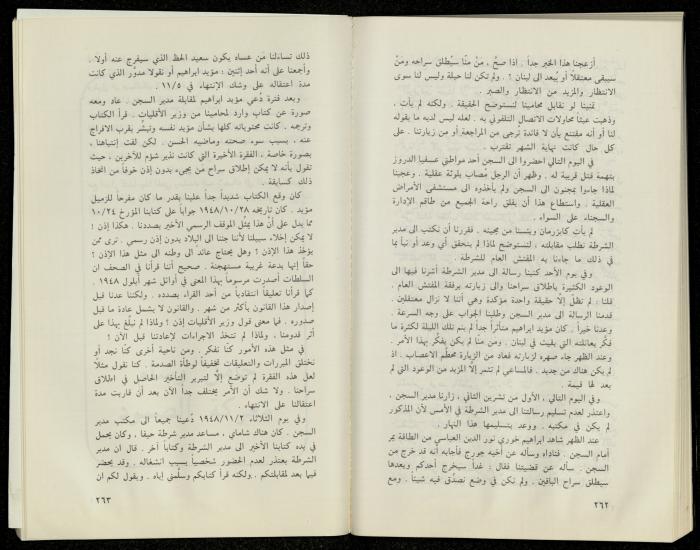 أزعجنا هذا الخبر جداً . اذا صحّ ، مَنْ منّا سيُطلق سراحه ومَنْ
سيبقى معتقلاً أو يُبعد الى لبنان ؟ . ولم تكن لنا حيلة وليس لنا سوى
الانتظار والمزيد من الانتظار والصبر .
تمنينا لو نقابل محامينا لنستوضح الحقيقة . ولكنه لم يأت ،
وذهبت عبثاً محاولات الاتصال التلفوني به . لعله ليس لديه ما يقوله
لنا أو أنه مقتنع بأن لا فائدة تُرجى من المراجعة أو من زيارتنا . على
كل حال كانت نهاية الشهر تقترب .
في اليوم التالي احضروا الى السجن أحد مواطني عسفيا الدروز
بتهمة قتل قريبة له . وظهر أن الرجل مُصاب بلوثة عقلية . وعجبنا
لماذا جاءوا بمجنون الى السجن ولم يأخذوه الى مستشفى الأمراض
العقلية . واستطاع هذا أن يقلق راحة الجميع من طاقم الإدارة
والسجناء على السواء .
لم يأت كابزرمان ويئسنا من مجيئه . فقررنا أن نكتب الى مدير
الشرطة نطلب مقابلته ، لنستوضح لماذا لم يتحقق أي وعد أو نبأ بما
في ذلك ما جاءنا به المفتش العام للشرطة .
وفي يوم الأحد كتبنا رسالة الى مدير الشرطة أشرنا فيها الى
الوعود الكثيرة باطلاق سراحنا والى زيارته برفقة المفتش العام .
قلنا : لم تظلّ إلاّ حقيقة واحدة مؤكدة وهي أننا لا نزال معتقلين .
قدمنا الرسالة الى مدير السجن وطلبنا الجواب على وجه السرعة .
وعدنا خيراً . كان مؤيد ابراهيم متأثراً جداً لم ينم تلك الليلة لكثرة ما
فكّر بعائلته التي بقيت في لبنان . ومن منّا لم يكن يفكّر بهذا الأمر .
وعند الظهر جاء صهره لزيارته فعاد من الزيارة محطّم الاعصاب . اذ
لم يكن هناك من جديد . فالمساعي لم تثمر إلاّ المزيد من الوعود التي لم
يعد لها قيمة .
وفي اليوم التالي ، الأول من تشرين الثاني ، زارنا مدير السجن ،
واعتذر لعدم تسليم رسالتنا الى مدير الشرطة في الأمس لأن المذكور
لم يكن في مكتبه . ووعد بتسليمها هذا النهار .
عند الظهر شاهد ابراهيم خوري نور الدين العباسي من الطاقة يمر
أمام السجن . فناداه وسأله عن أخيه جورج فأجابه أنه قد خرج من
السجن . سأله عن قضيتنا فقال : غداً سيخرج أحدكم وبعدها
سيطلق سراح الباقين . ولم نكن في وضع نصدّق فيه شيئاً . ومع
٢٦٢
ذلك تساءلنا مَن عساه يكون سعيد الحظ الذي سيفرج عنه أولا .
وأجمعنا على أنه أحد إثنين : مؤيد ابراهيم أو نقولا مدوّر الذي كانت
مدة اعتقاله على وشك الإنتهاء في ١١/٥ .
وبعد فترة دُعي مؤيد ابراهيم لمقابلة مدير السجن . عاد ومعه
صورة عن كتاب وارد لمحامينا من وزير الأقليات . قرأ الكتاب
وترجمه . كانت محتوياته كلها بشأن مؤيد نفسه وتبشّر بقرب الافراج
عنه ، بسبب سوء صحته وماضيه الحسن . لكن لفت إنتباهنا ،
بصورة خاصة ، الفقرة الأخيرة التي كانت نذير شؤم للآخرين ، حيث
تقول بأنه لا يمكن إطلاق سراح من يجيء بدون إذن خوفاً من اتخاذ
ذلك كسابقة .
كان وقع الكتاب شديداً جداً علينا بقدر ما كان مفرحاً للزميل
مؤيد . كان تاريخه ١٩٤٨/١٠/٢٨ جواباً على كتابنا المؤرخ ١٠/٢٤
مما يدل على أنّ هذا يمثّل الموقف الرسمي الأخير بصددنا . هكذا إذن !
لا يمكن إخلاء سبيلنا لأننا جئنا الى البلاد بدون إذن رسمي . ترى ممن
يؤخذ هذا الإذن ؟ وهل يحتاج عائد الى وطنه الى مثل هذا الإذن ؟
حقاً إنها بدعة غريبة مستهجنة . صحيح أننا قرأنا في الصحف ان
السلطات أصدرت مرسوماً بهذا المعنى في أوائل شهر أيلول ١٩٤٨ .
كما قرأنا تعليقاً انتقادياً من أحد القراء بصدده . ولكننا عدنا قبل
إصدار هذا القانون بأكثر من شهر . والقانون لا يشمل عادة ما قبل
صدوره . فما معنى قول وزير الأقليات إذن ؟ ولماذا لم نبلّغ بهذا على
أثر قدومنا ، ولماذا لم تتخذ الاجراءات لإعادتنا قبل الآن !
في مثل هذه الأمور كنّا نفكر . ومن ناحية أخرى كنّا نجد أو
نختلق المبررات والتعليلات تخفيفاً لوطأة الصدمة . كنا نقول مثلاً
لعل هذه الفقرة لم توضع إلاّ لتبرير التأخير الحاصل في اطلاق
سراحنا . ولا شك أن الأمر يختلف جداً الآن بعد أن قاربت مدة
اعتقالنا على الانتهاء .
وفي يوم الثلاثاء ١٩٤٨/١١/٢ دُعينا جميعاً الى مكتب مدير
السجن . كان هناك شامأي ، مساعد مدير شرطة حيفا ، وكان يحمل
في يده كتابنا الأخير الى مدير الشرطة وكتاباً آخر . قال ان مدير
الشرطة يعتذر لعدم الحضور شخصياً بسبب انشغاله . وقد يحضر
فيما بعد لمقابلتكم . ولكنه قرأ كتابكم وسلّمني إياه . ويقول لكم ان
٢٦٣